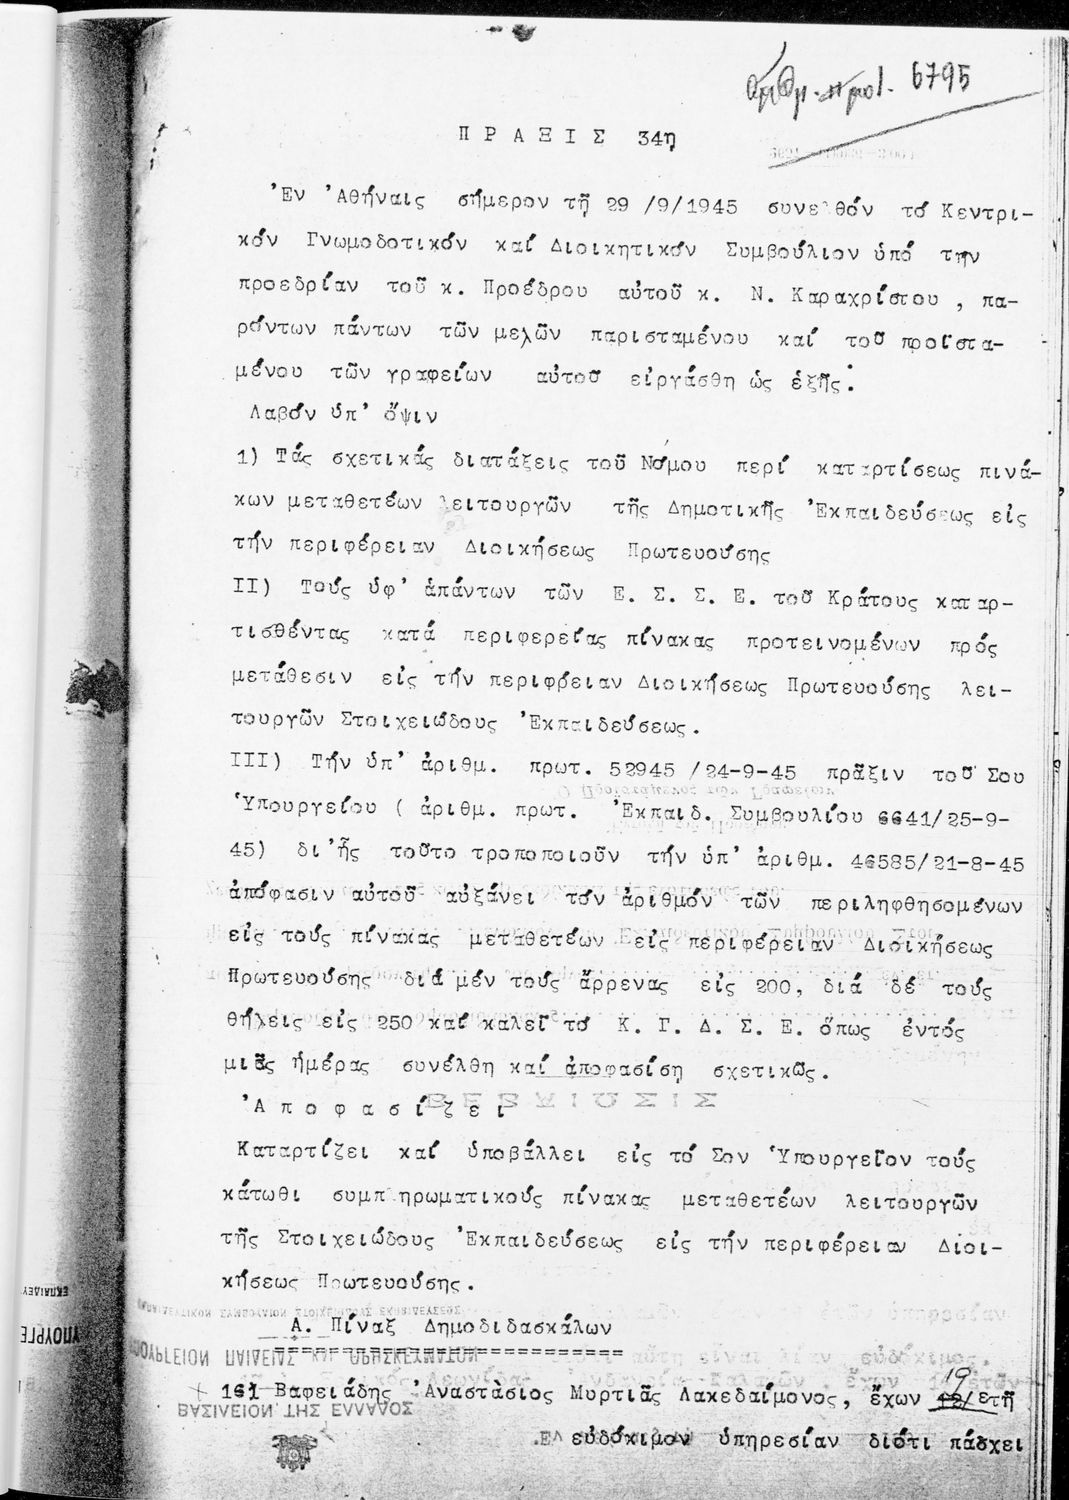 Αριθμ. πρωτ. 6795
ΠΡΑΞΙΣ 34η
Ἐν Ἀθήναις σήμερον τῇ 29 /9/1945 συνελθόν τό Κεντρι-
κόν Γνωμοδοτικόν καί Διοικητικόν Συμβούλιον ὑπό την
προεδρίαν τοῦ κ. Προέδρου αὐτοῦ κ. Ν. Καραχρίστου , πα-
ρόντων πάντων τῶν μελῶν παρισταμένου καί τοῦ προϊστα-
μένου τῶν γραφείων αὐτοῦ εἰργάσθη ὡς ἑξῆς:
Λαβόν ὑπ' ὄψιν
1) Τάς σχετικάς διατάξεις τοῦ Νόμου περί καταρτίσεως πινά-
κων μεταθετέων λειτουργῶν τῆς Δημοτικῆς Ἐκπαιδεύσεως εἰς
τήν περιφέρειαν Διοικήσεως Πρωτευούσης
ΙΙ) Τούς ὑφ' ἁπάντων τῶν Ε. Σ. Σ. Ε. τοῦ Κράτους καταρ-
τισθέντας κατά περιφερείας πίνακας προτεινομένων πρός
μετάθεσιν εἰς τήν περιφρειαν Διοικήσεως Πρωτευούσης λει-
τουργῶν Στοιχειώδους Ἐκπαιδεύσεως.
ΙΙΙ) Τήν ὑπ' ἀριθμ. πρωτ. 52945 /24-9-45 πρᾶξιν τοῦ Σου
Ὑπουργείου ( ἀριθμ. πρωτ. Ἐκπαιδ. Συμβουλίου 6641/25-9-
45) δι'ἧς τοῦτο τροποποιοῦν τήν ὑπ' ἀριθμ. 46585/21-8-45
ἀπόφασιν αὐτοῦ αὐξάνει τόν ἀριθμόν τῶν περιληφθησομένων
εἰς τούς πίνακας μεταθετέων εἰς περιφέρειαν Διοικήσεως
Πρωτευούσης διά μέν τούς ἄρρενας εἰς 200, διά δέ τούς
θήλεις εἰς 250 καί καλεῖ τό Κ. Γ. Δ. Σ. Ε. ὅπως ἐντός
μιᾶς ἡμέρας συνέλθη καί ἀποφασίση σχετικῶς.
Ἀποφασίζει
Καταρτίζει καί ὑποβάλλει εἰς τό Σον Ὑπουργεῖον τούς
κάτωθι συμπληρωματικούς πίνακας μεταθετέων λειτουργῶν
τῆς Στοιχειώδους Ἐκπαιδεύσεως εἰς τήν περιφέρειαν Διοι-
κήσεως Πρωτευούσης.
Α. Πίναξ Δημοδιδασκάλων
+ 161 Βαφειάδης Ἀναστάσιος Μυρτιᾶς Λακεδαίμονος, ἔχων 19 ετῆ
εὐδόκιμον ὑπηρεσίαν διότι πάσχει